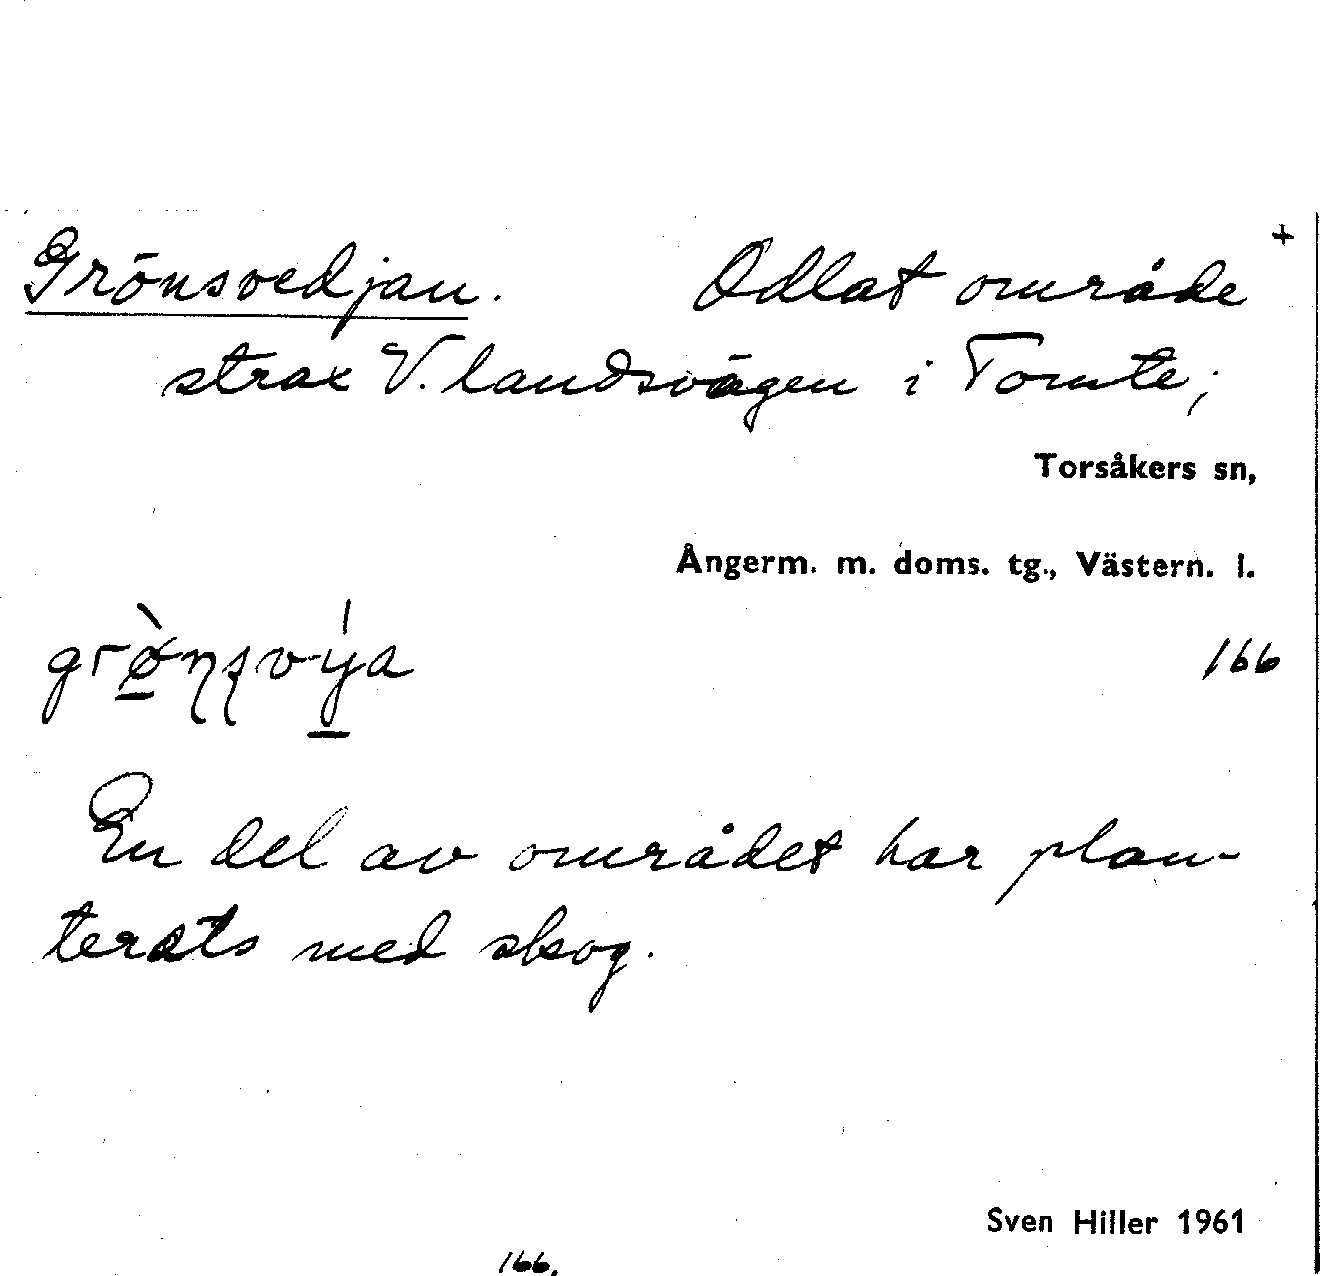 +
Grönsvedjan. Odlat område
strax V. landsvägen i Tomte;
Torsåkers sn,
Ångerm. m. doms. tg., Västern. l.
166
En del av området har plan-
terats med skog.
Sven Hiller 1961
166.